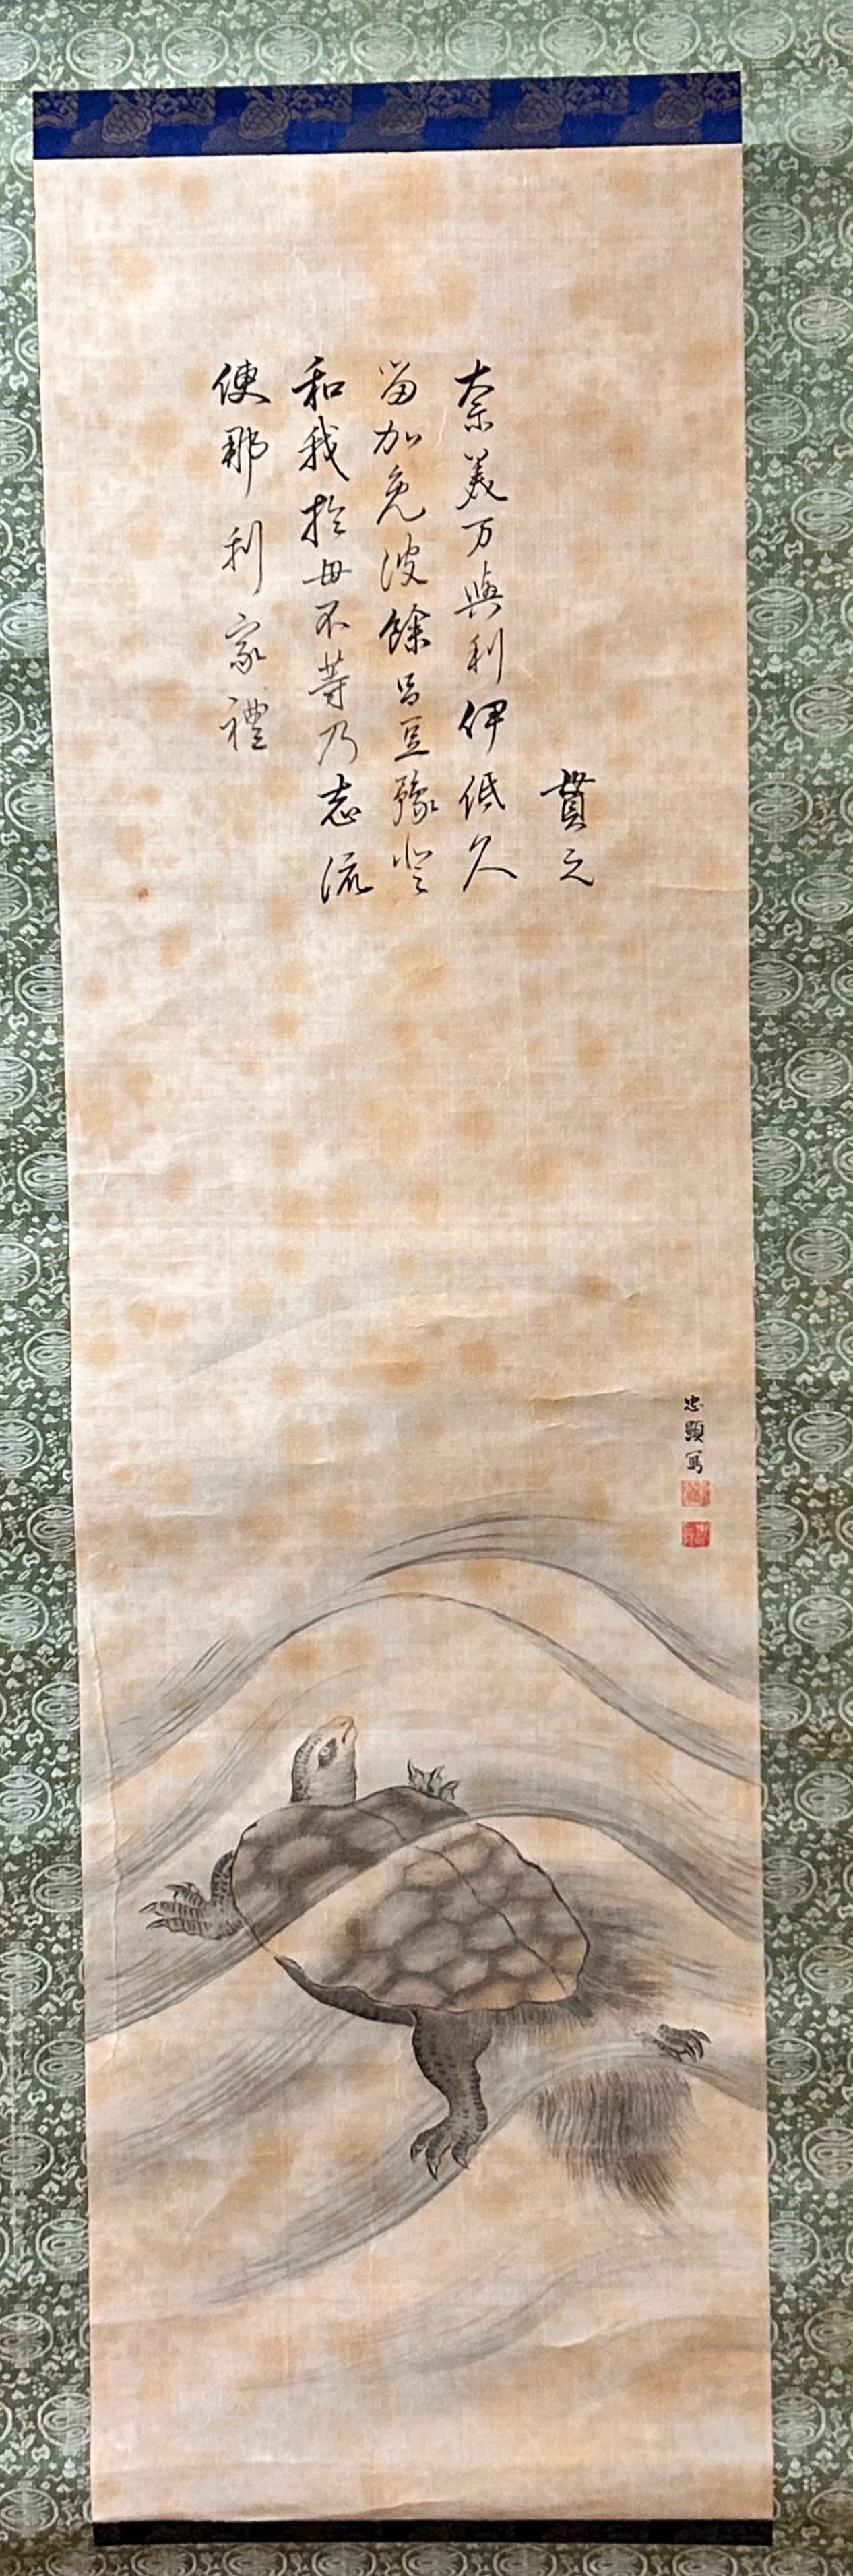 貫之
奈美万與利伊低久
留加免波餘呂豆豫登
和我於母不等乃志流
便那利家禮
忠顯写